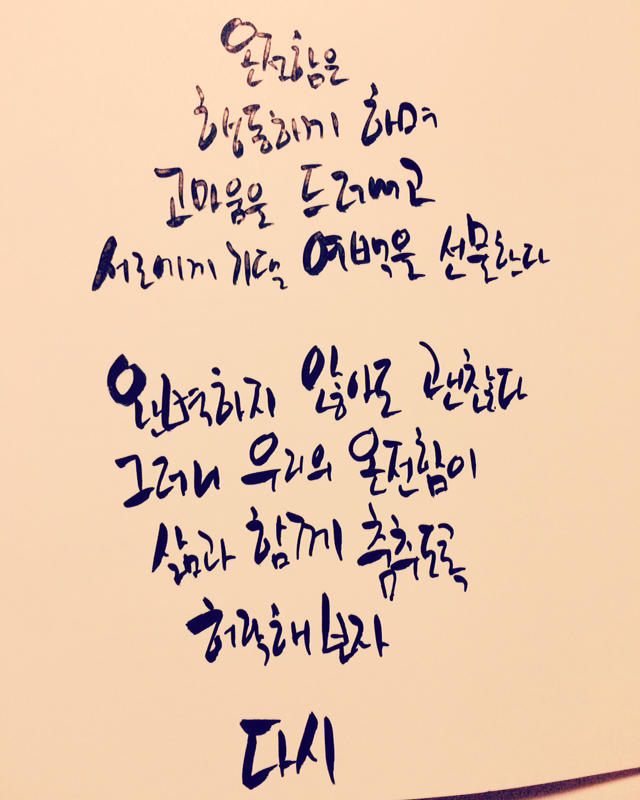 온전함은
행동하게 하며
고마움을 드러내고
서로에게 기댈 여백을 선물한다
완벽하지 않아도 괜찮다
그러니 우리의 온전함이
삶과 함께 춤추도록
허락해 보자
다시